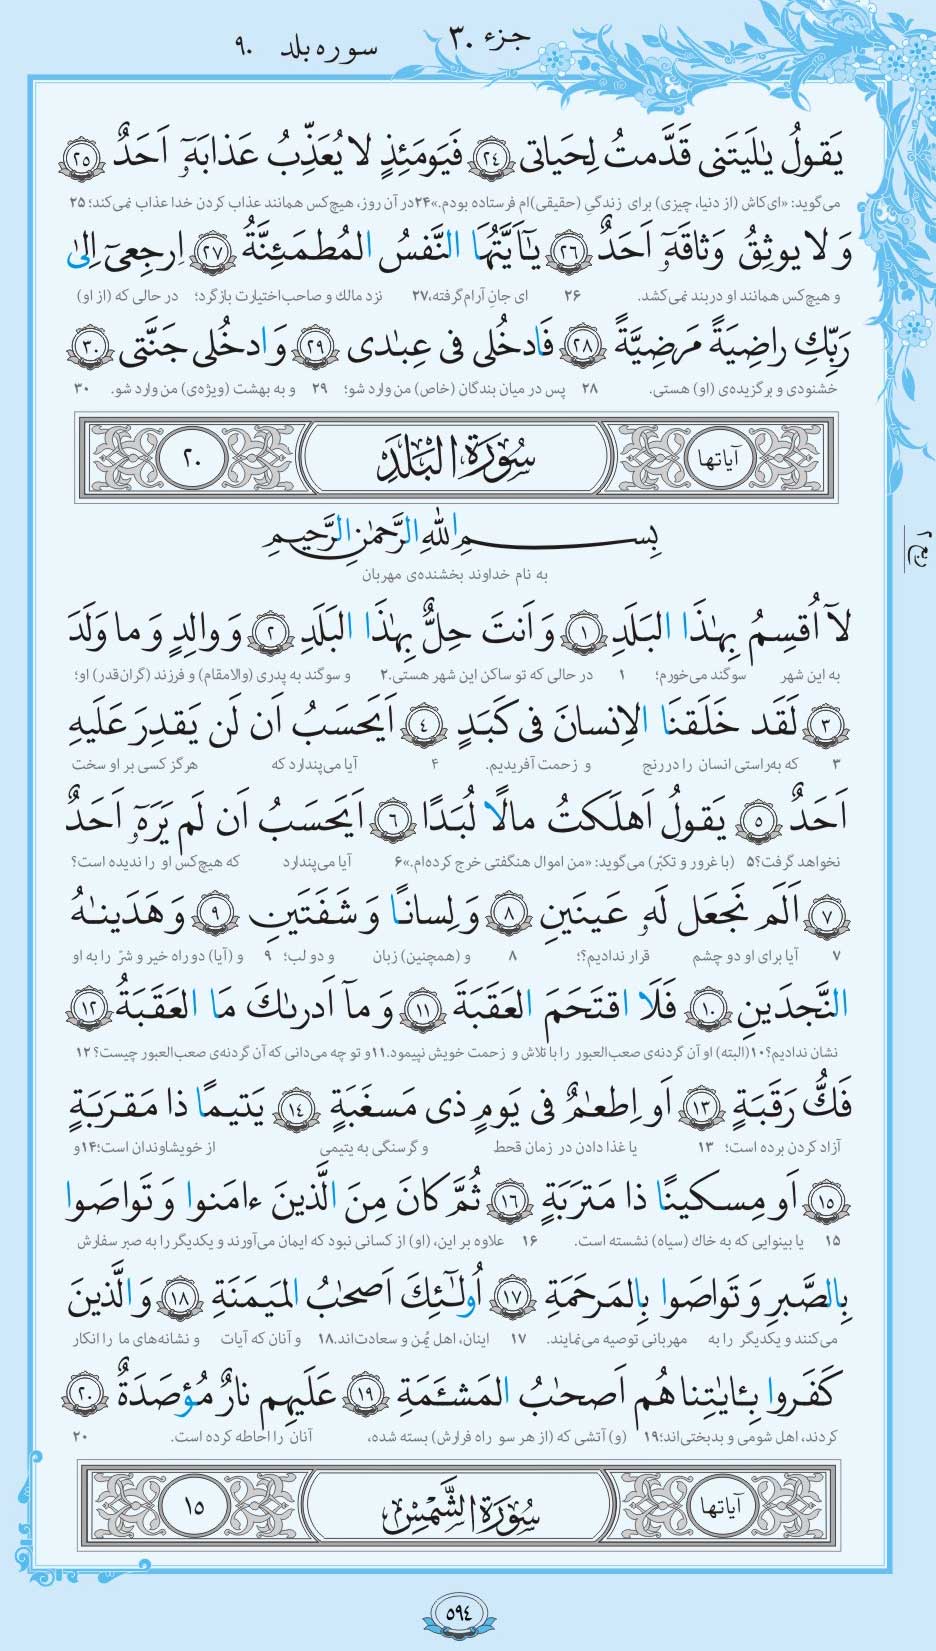 جزء ۳۰
سوره بلد ۹۰
يَقولُ يـٰلَيتَنى قَدَّمتُ لِحَياتى ﴿٢٤﴾ فَيَومَئِذٍ لا يُعَذِّبُ عَذابَهٗٓ اَحَدٌ ﴿٢٥﴾
می‌گوید: «ای‌کاش (از دنیا، چیزی) برای زندگیِ (حقیقی)ام فرستاده بودم.»۲۴ در آن روز، هیچ‌کس همانند عذاب کردن خدا عذاب نمی‌کند؛ ۲۵
وَ لا يوثِقُ وَثاقَهٗٓ اَحَدٌ ﴿٢٦﴾ يـٰٓاَيَّتُهَا النَّفسُ المُطمَئِنَّةُ ﴿٢٧﴾ اِرجِعىٓ اِلىٰ
و هیچ‌کس همانند او دربند نمی‌کشد. ۲۶ ای جانِ آرام‌گرفته،۲۷ نزد مالك و صاحب‌اختیارت بازگرد؛ در حالی که (از او)
رَبِّكِ راضِيَةً مَرضِيَّةً ﴿٢٨﴾ فَادخُلى فى عِبـٰدى ﴿٢٩﴾ وَ ادخُلى جَنَّتى ﴿٣٠﴾
خشنودی و برگزیده‌ی (او) هستی. ۲۸ پس در میان بندگان (خاص) من وارد شو؛ ۲۹ و به بهشت (ویژه‌ی) من وارد شو. ۳۰
آیاتها سُورَةُ الْبَلَد ٢٠
بِسمِ اللّٰهِ الرَّحمٰنِ الرَّحيمِ
به نام خداوند بخشنده‌ی مهربان
ربع ۲
لآ اُقسِمُ بِهـٰذَا البَلَدِ ﴿١﴾ وَ اَنتَ حِلٌّ بِهـٰذَا البَلَدِ ﴿٢﴾ وَ والِدٍ وَ ما وَلَدَ
به این شهر سوگند می‌خورم؛ ۱ در حالی که تو ساکن این شهر هستی.۲ و سوگند به پدری (والامقام) و فرزند (گران‌قدر) او؛
﴿٣﴾ لَقَد خَلَقنَا الاِنسانَ فى كَبَدٍ ﴿٤﴾ اَيَحسَبُ اَن لَن يَقدِرَ عَلَيهِ
۳ که به‌راستی انسان را در رنج و زحمت آفریدیم. ۴ آیا می‌پندارد که هرگز کسی بر او سخت
اَحَدٌ ﴿٥﴾ يَقولُ اَهلَكتُ مالًا لُبَدًا ﴿٦﴾ اَيَحسَبُ اَن لَم يَرَهٗٓ اَحَدٌ
نخواهد گرفت؟۵ (با غرور و تکبّر) می‌گوید: «من اموال هنگفتی خرج کرده‌ام.»۶ آیا می‌پندارد که هیچ‌کس او را ندیده است؟
﴿٧﴾ اَلَم نَجعَل لَهٗ عَينَينِ ﴿٨﴾ وَ لِسانًا وَ شَفَتَينِ ﴿٩﴾ وَ هَدَينـٰهُ
۷ آیا برای او دو چشم قرار ندادیم؟؛ ۸ و (همچنین) زبان و دو لب؛ ۹ و (آیا) دو راه خیر و شرّ را به او
النَّجدَينِ ﴿١٠﴾ فَلَا اقتَحَمَ العَقَبَةَ ﴿١١﴾ وَ مآ اَدرىٰكَ مَا العَقَبَةُ ﴿١٢﴾
نشان ندادیم؟۱۰ (البته) او آن گردنه‌ی صعب‌العبور را با تلاش و زحمت خویش نپیمود.۱۱ و تو چه می‌دانی که آن گردنه‌ی صعب‌العبور چیست؟ ۱۲
فَكُّ رَقَبَةٍ ﴿١٣﴾ اَو اِطعـٰمٌ فى يَومٍ ذى مَسغَبَةٍ ﴿١٤﴾ يَتيمًا ذا مَقرَبَةٍ
آزاد کردن برده است؛ ۱۳ یا غذا دادن در زمان قحط و گرسنگی به یتیمی از خویشاوندان است؛۱۴و
﴿١٥﴾ اَو مِسكينًا ذا مَترَبَةٍ ﴿١٦﴾ ثُمَّ كانَ مِنَ الَّذينَ ءامَنوا وَ تَواصَوا
۱۵ یا بینوایی که به خاك (سیاه) نشسته است. ۱۶ علاوه بر این، (او) از کسانی نبود که ایمان می‌آورند و یکدیگر را به صبر سفارش
بِالصَّبرِ وَ تَواصَوا بِالمَرحَمَةِ ﴿١٧﴾ اُولـٰٓئِكَ اَصحـٰبُ المَيمَنَةِ ﴿١٨﴾ وَ الَّذينَ
می‌کنند و یکدیگر را به مهربانی توصیه می‌نمایند. ۱۷ اینان، اهل یُمن و سعادت‌اند.۱۸ و آنان که آیات و نشانه‌های ما را انکار
كَفَروا بِـٔايـٰتِنا هُم اَصحـٰبُ المَشـَٔمَةِ ﴿١٩﴾ عَلَيهِم نارٌ مُؤصَدَةٌ ﴿٢٠﴾
کردند، اهل شومی و بدبختی‌اند؛۱۹ (و) آتشی که (از هر سو راه فرارش) بسته شده، آنان را احاطه کرده است. ۲۰
آیاتها سُورَةُ الشَّمْس ١٥
۵۹۴